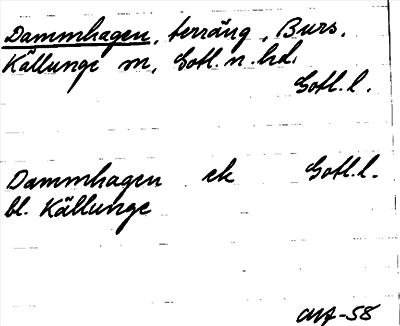 Dammhagen, terräng, Burs,
Källunge sn, Gotl. n. hd.
Gotl. l.
Dammhagen ek Gotl. l.
bl. Källunge
-58